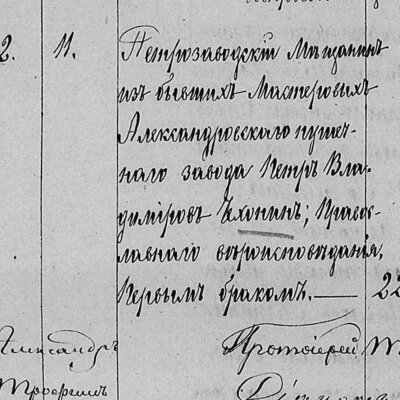 2. 11. Петрозаводскій Мѣщанинъ
изъ бывшихъ Мастеровыхъ
Александровскаго пушеч-
наго завода Петръ Вла-
диміровъ Чехонинъ; Право-
славнаго вѣроисповѣданія,
Первымъ бракомъ. — 22
Александръ Протоіерей
Трофимъ